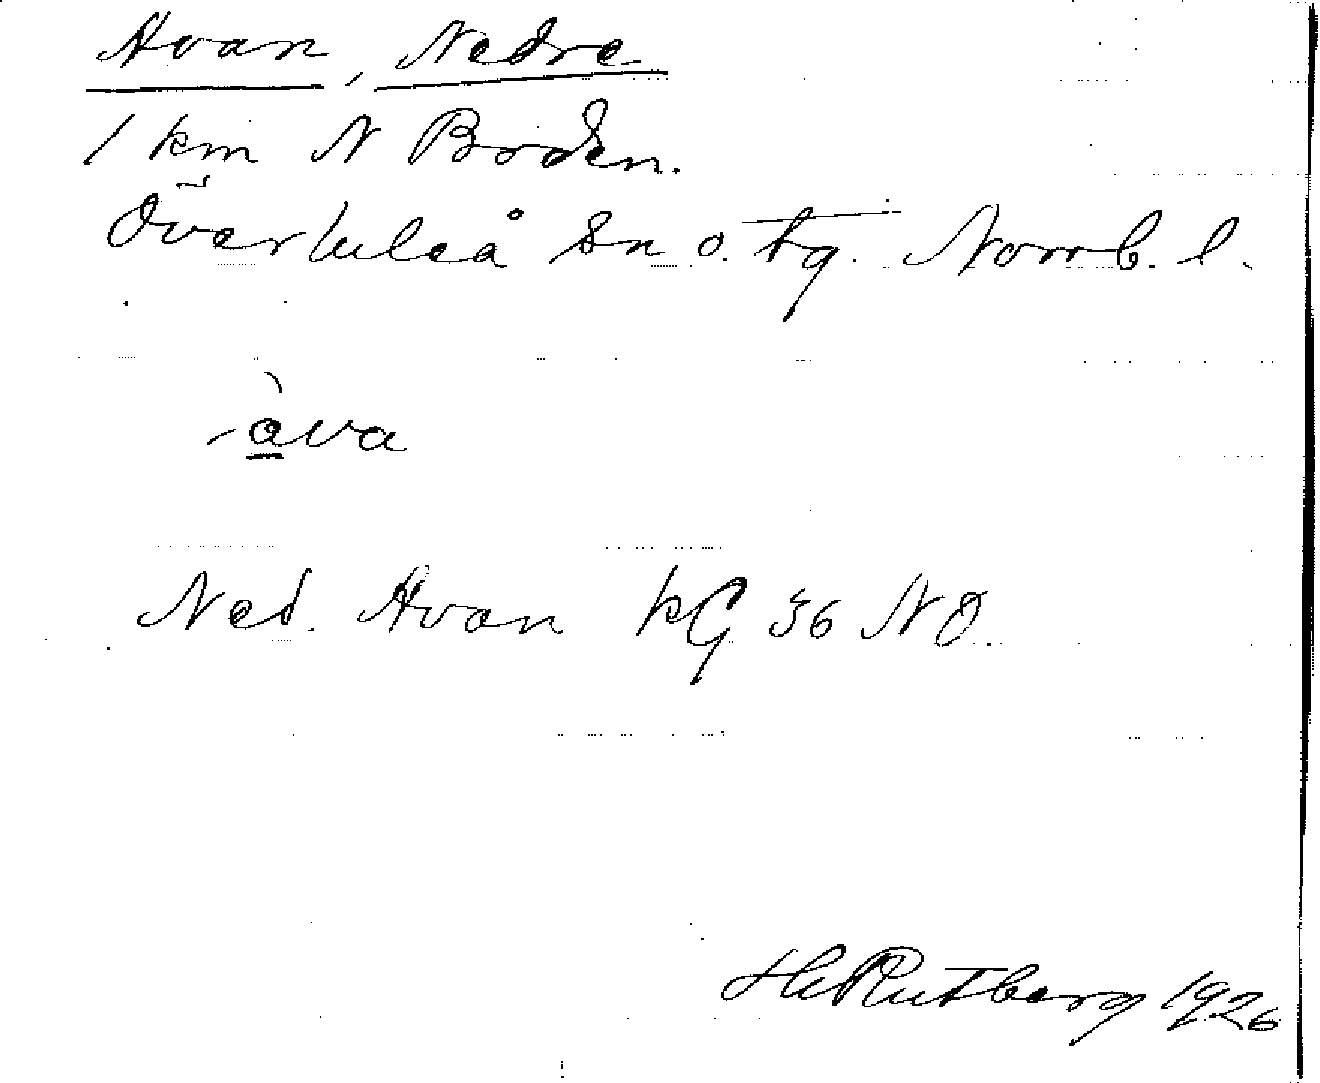 Avan, Nedre
1 km N Boden.
Överluleå Sn o. tg. Norrb. l.
-àva
Ned. Avan kG 36 NO.
H Rutberg 1926